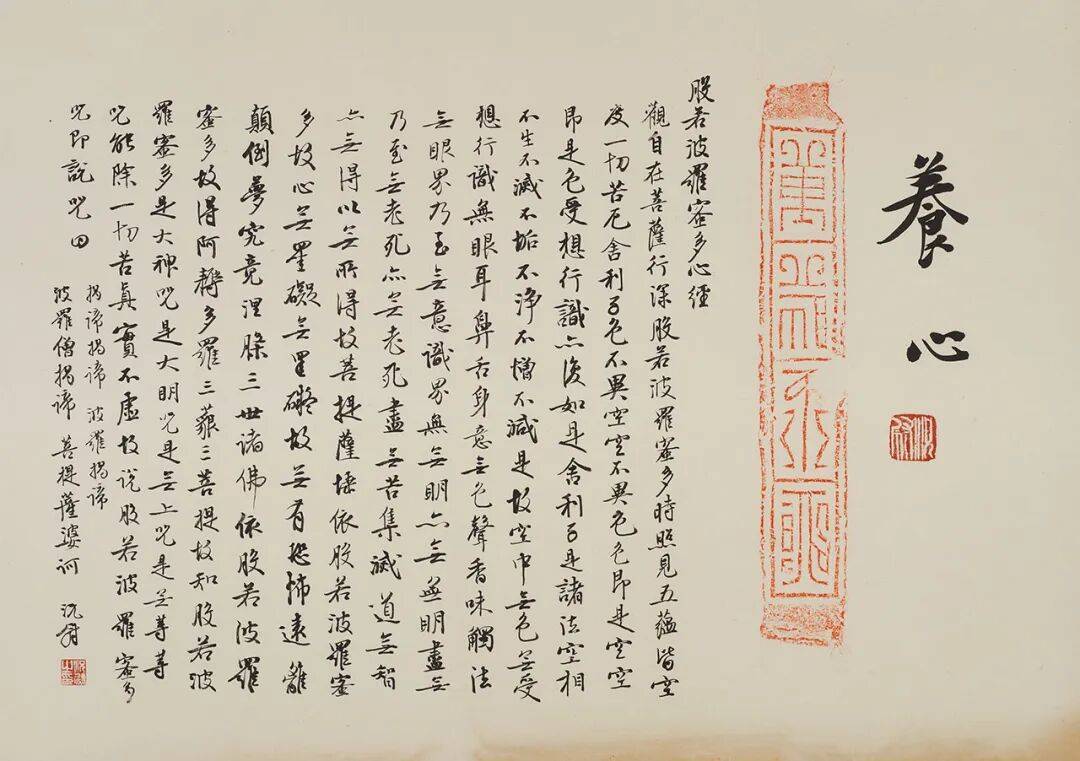 養心
般若波羅蜜多心經
觀自在菩薩行深般若波羅蜜多時照見五蘊皆空
度一切苦厄舍利子色不異空空不異色色即是空空
即是色受想行識亦復如是舍利子是諸法空相
不生不滅不垢不淨不憎不減是故空中無色無受
想行識無眼耳鼻舌身意無色聲香味觸法
無眼界乃至無意識界無無明亦無無明盡無
乃至無老死亦無老死盡無苦集滅道無智
亦無得以無所得故菩提薩埵依般若波羅蜜
多故心無罣礙無罣礙故無有恐怖遠離
顛倒夢究竟涅槃三世諸佛依般若波羅
蜜多故得阿耨多羅三藐三菩提故知般若波
羅蜜多是大神咒是大明咒是無上咒是無等等
咒能除一切苦真實不虛故說般若波羅蜜多
咒即說咒曰
揭諦揭諦 波羅揭諦
波羅僧揭諦 菩提薩婆訶